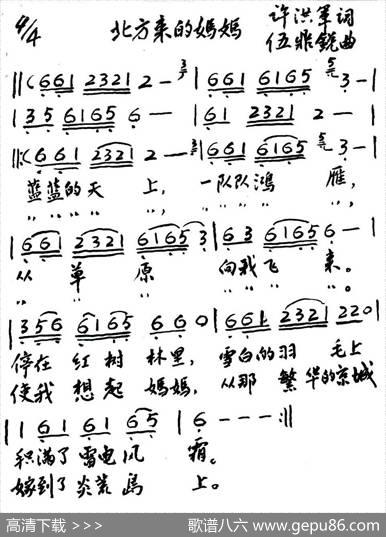 4/4 北方来的妈媽 许洪军词
伍非銳曲
||:( 661 2321 2 - | 661 6165 3 - |
| 35 6165 6 - | 61 2321 2 - )
||: 661 2321 2 - | 661 6165 3 - |
蓝蓝的天 上, 一队队鸿 雁,
| 661 2321 6165 3 | 63 6165 6 - |
从 草 原 向我飞 来。
| 356 6165 6 60 | 661 2321 220 |
停在 红树 林里, 雪白的羽 毛上
使我 想起 媽媽, 从那 繁华的京城
| 1 61 61 65 | 6 - - - :||
积满了雷电风 霜。
嫁到了炎荒島 上。
高清下载 >>> 歌谱八六 www.gepu86.com